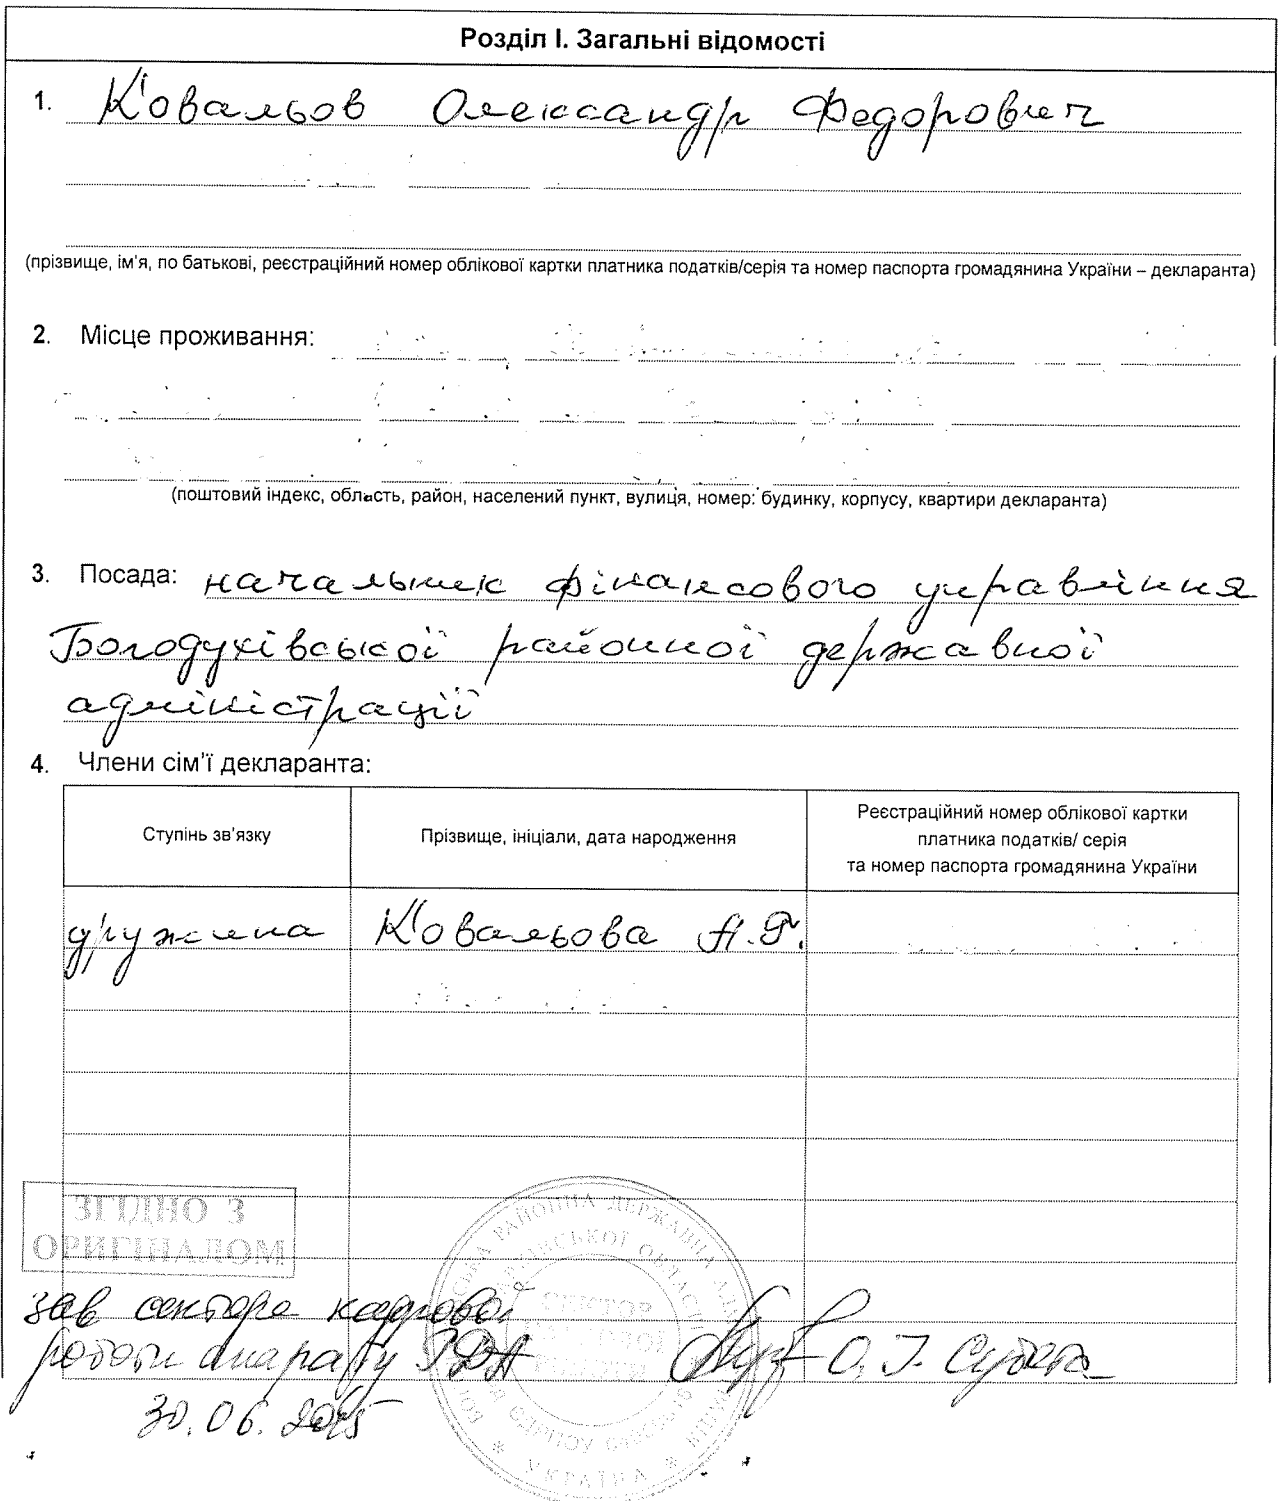 Розділ І. Загальні відомості
1. Ковальов Олександр Федорович
(прізвище, ім'я, по батькові, реєстраційний номер облікової картки платника податків/серія та номер паспорта громадянина України – декларанта)
2. Місце проживання:
(поштовий індекс, область, район, населений пункт, вулиця, номер: будинку, корпусу, квартири декларанта)
3. Посада: начальник фінансового управління
Богодухівської районної державної
адміністрації
4. Члени сім'ї декларанта:
Ступінь зв'язку
Прізвище, ініціали, дата народження
Реєстраційний номер облікової картки
платника податків/ серія
та номер паспорта громадянина України
дружина Ковальова А.Г.
ЗГІДНО З
ОРИГІНАЛОМ
РАЙОННА ДЕРЖАВНА
ОБЛАСТІ
СЕКТОР
УКРАЇНА
зав сектора кадрової
роботи апарату РДА О.І.
30.06.2015